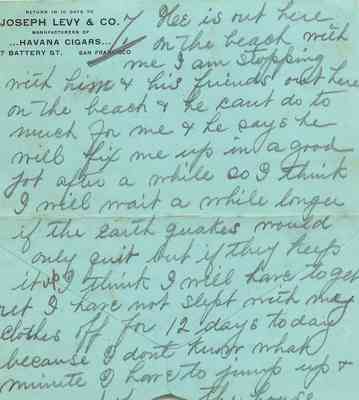 RETURN IN 10 DAYS TO
JOSEPH LEVY & CO.
MANUFACTURERS OF
...HAVANA CIGARS...
7 BATTERY ST. SAN FRANCISCO
7 Hee is out here
on the beach with
me I am stopping
with him & his friends out here
on the beach & he cant do to
much for me & he says he
will fix me up in a good
jot after a while so I think
I will wait a while longer
if the earth quakes would
only quit but if they keep
it up I think I will have to get
I have not slept with my
clothes off for 12 days today
because I dont know what
minute I have to jump up &
the house